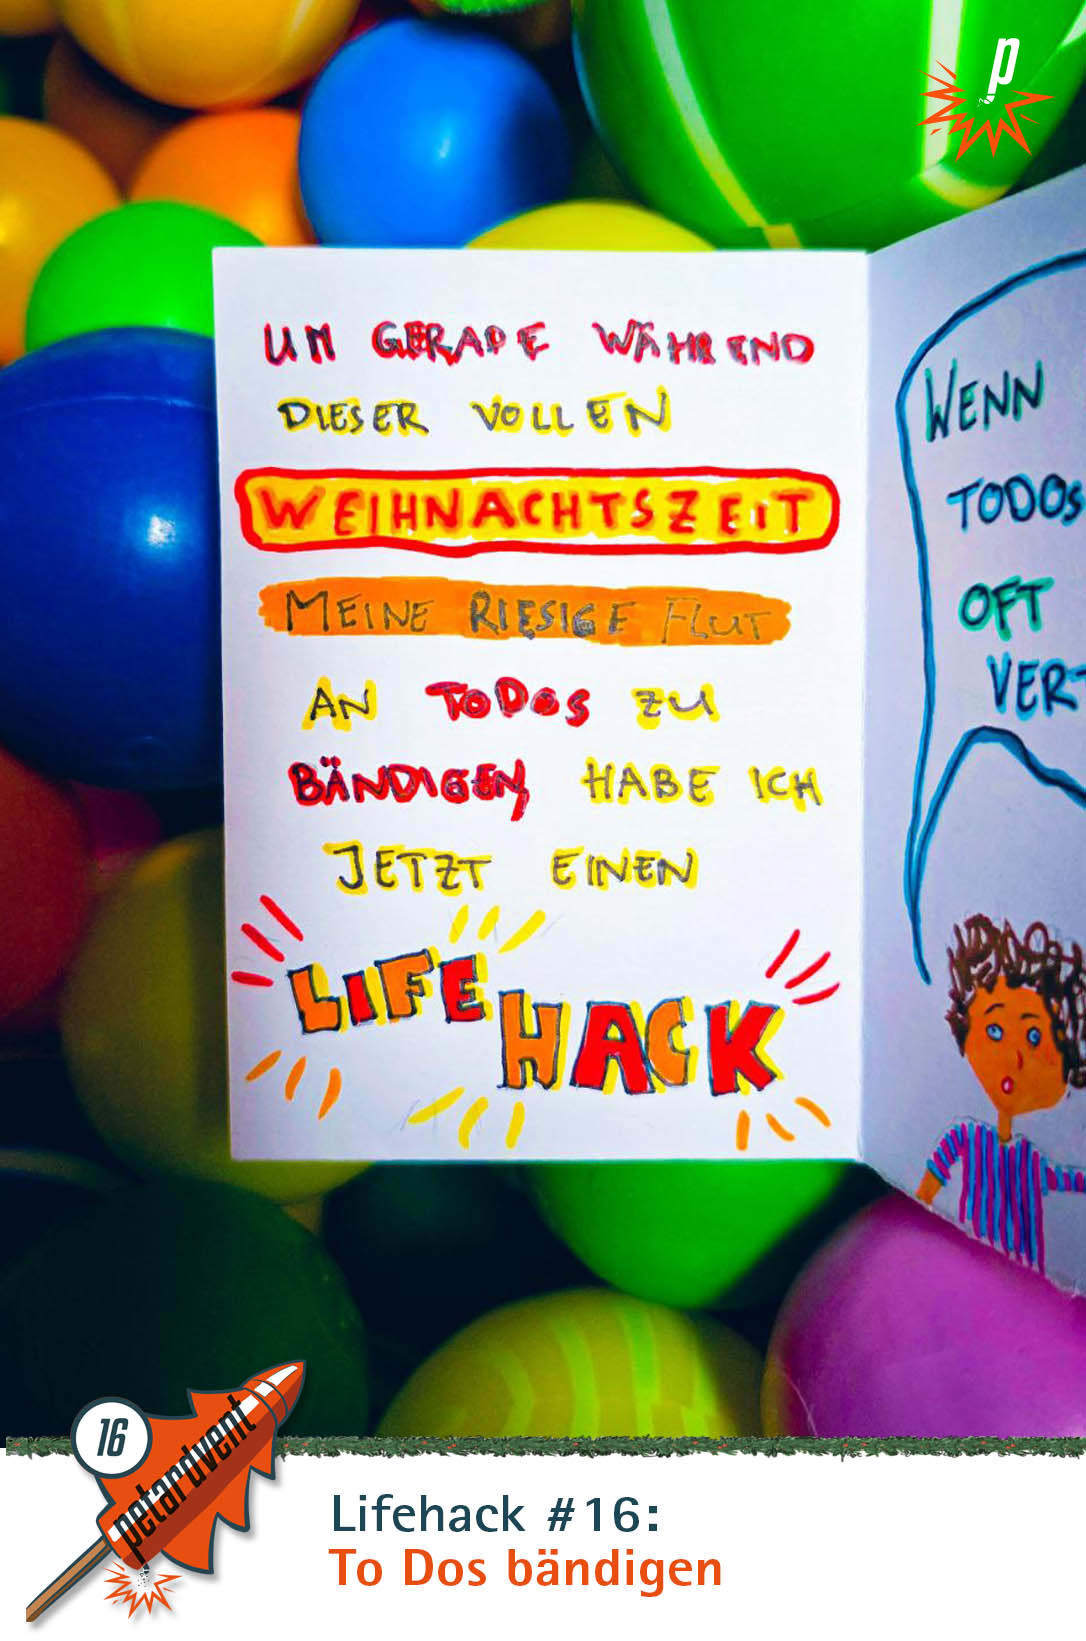 p
UM GERADE WÄHREND
DIESER VOLLEN
WEIHNACHTSZEIT
MEINE RIESIGE FLUT
AN TODOS ZU
BÄNDIGEN, HABE ICH
JETZT EINEN
LIFE
HACK
WENN
TODOS
OFT
16
petardvent
Lifehack #16:
To Dos bändigen